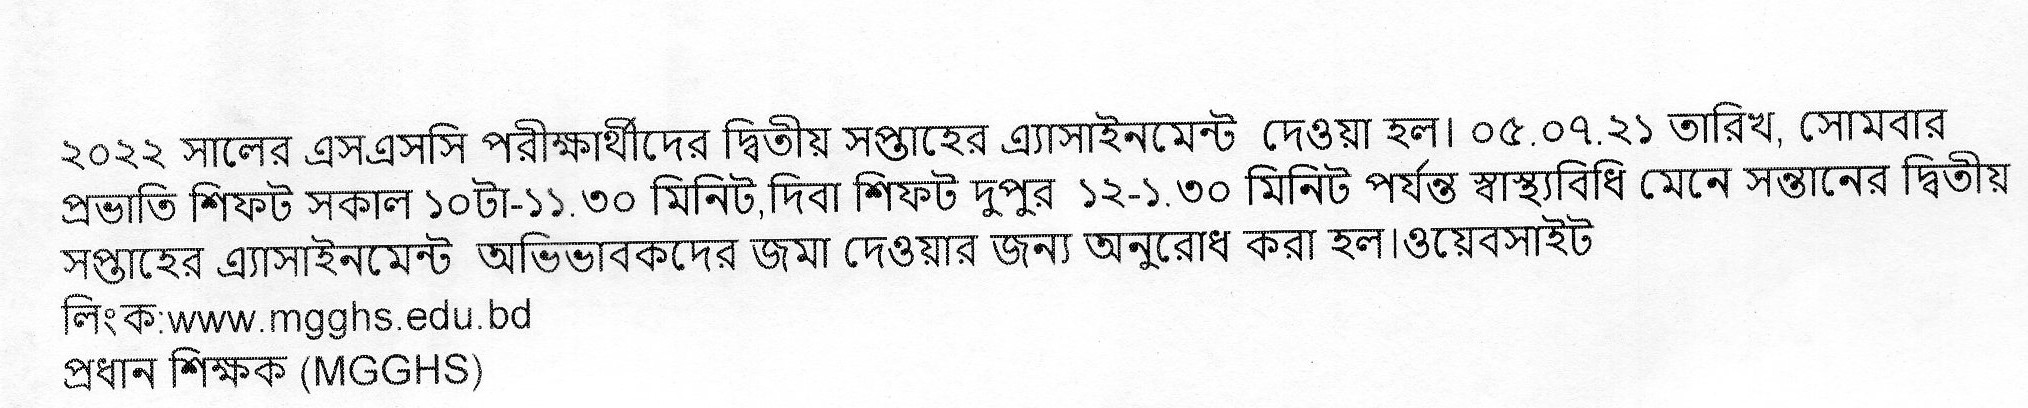 ২০২২ সালের এসএসসি পরীক্ষার্থীদের দ্বিতীয় সপ্তাহের এ্যাসাইনমেন্ট দেওয়া হল। ০৫.০৭.২১ তারিখ, সোমবার
প্রভাতি শিফট সকাল ১০টা-১১.৩০ মিনিট,দিবা শিফট দুপুর ১২-১.৩০ মিনিট পর্যন্ত স্বাস্থ্যবিধি মেনে সন্তানের দ্বিতীয়
সপ্তাহের এ্যাসাইনমেন্ট অভিভাবকদের জমা দেওয়ার জন্য অনুরোধ করা হল।ওয়েবসাইট
লিংক:www.mgghs.edu.bd
প্রধান শিক্ষক (MGGHS)